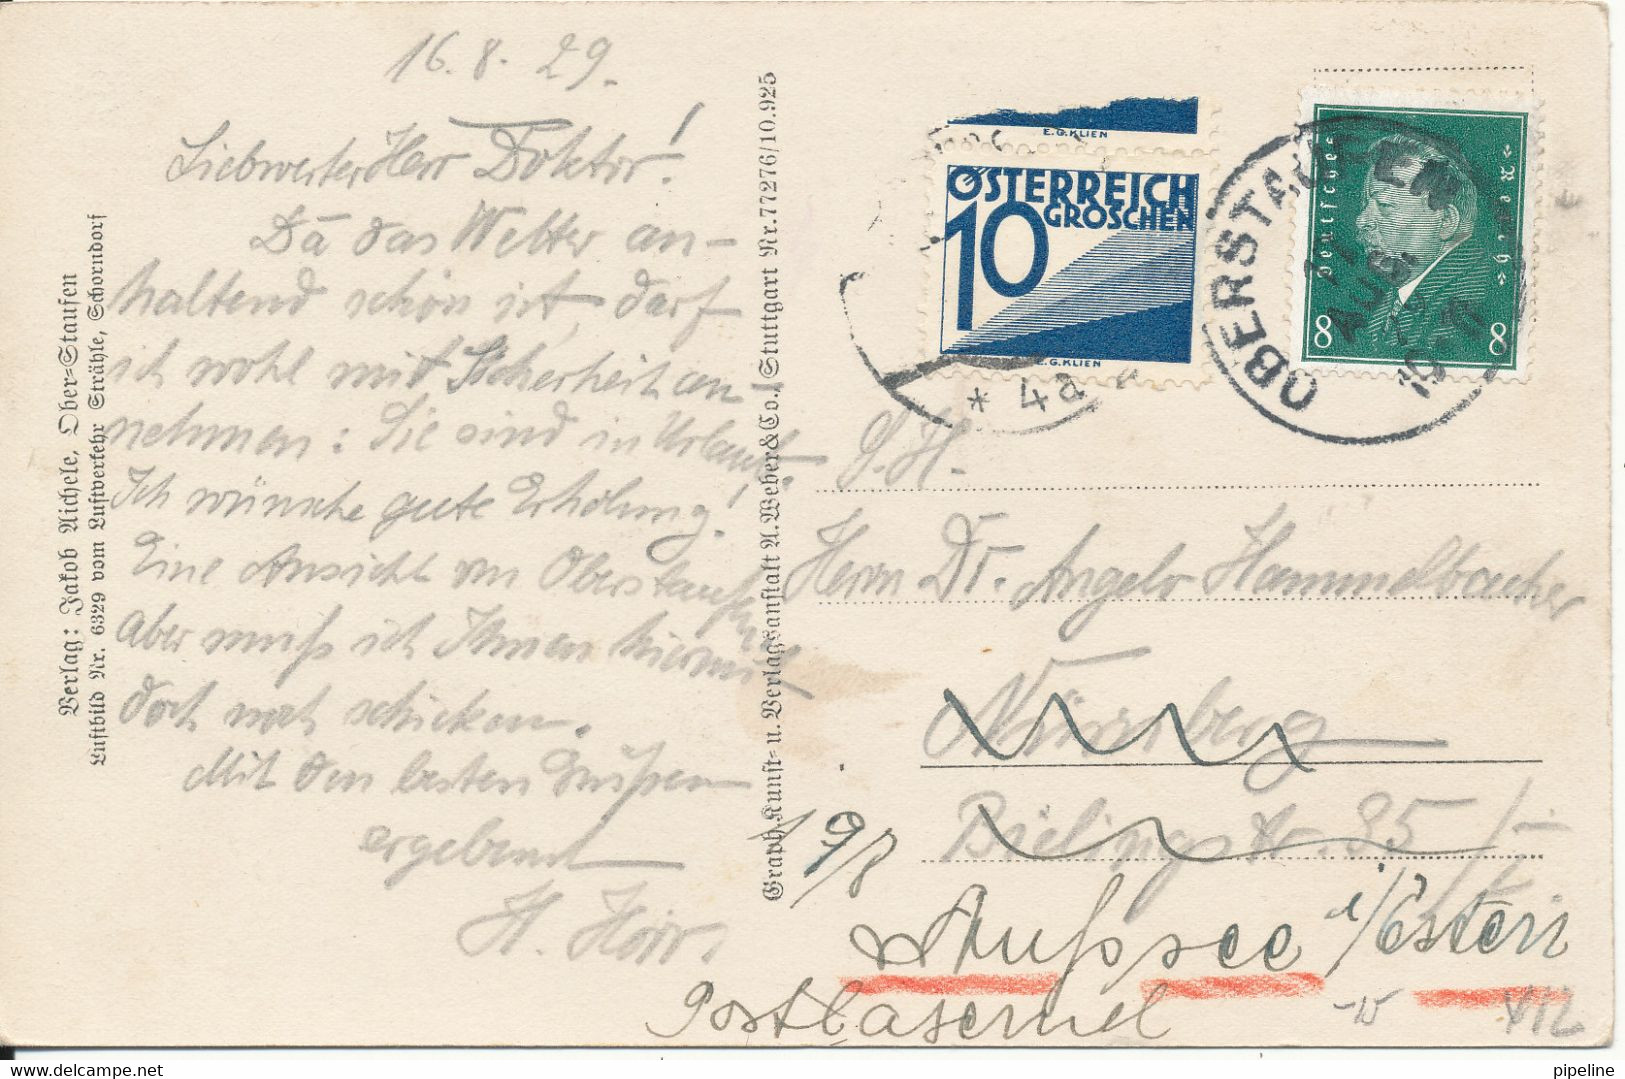 16.8.29.
Liebwerter Herr Doktor!
Da das Wetter an-
haltend schön ist, darf
ich wohl mit Sicherheit an-
nehmen: Sie sind in Urlaub.
Ich wünsche gute Erholung!
Eine Ansicht von Oberstaufen
aber muß ich Ihnen hiermit
doch noch schicken.
Mit den besten Grüßen
ergebenst
H.
Verlag: Jakob Aichele, Ober-Staufen
Luftbild Nr. 6329 vom Luftverkehr Strähle, Schorndorf
Graph. Kunst- u. Verlagsanstalt A. Weber & Co., Stuttgart Nr. 77276/10.925
E.G.KLIEN
ÖSTERREICH
10 GROSCHEN
E.G.KLIEN
* 4a
OBERSTAUFEN
17 AUG
Deutsches Reich
8 8
S. H.
Herrn Dr. Angelo Hammelbacher
Nürnberg
Bielingstr. 35
19/8
Aussee i/Östen
Postlasernd
VIZ
pipeline